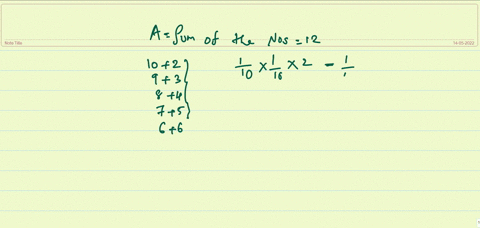 Note Title
14-05-2022
A = Sum of the Nos = 12
10 + 2
9 + 3
8 + 4
7 + 5
6 + 6
1/10 × 1/16 × 2 = 1/